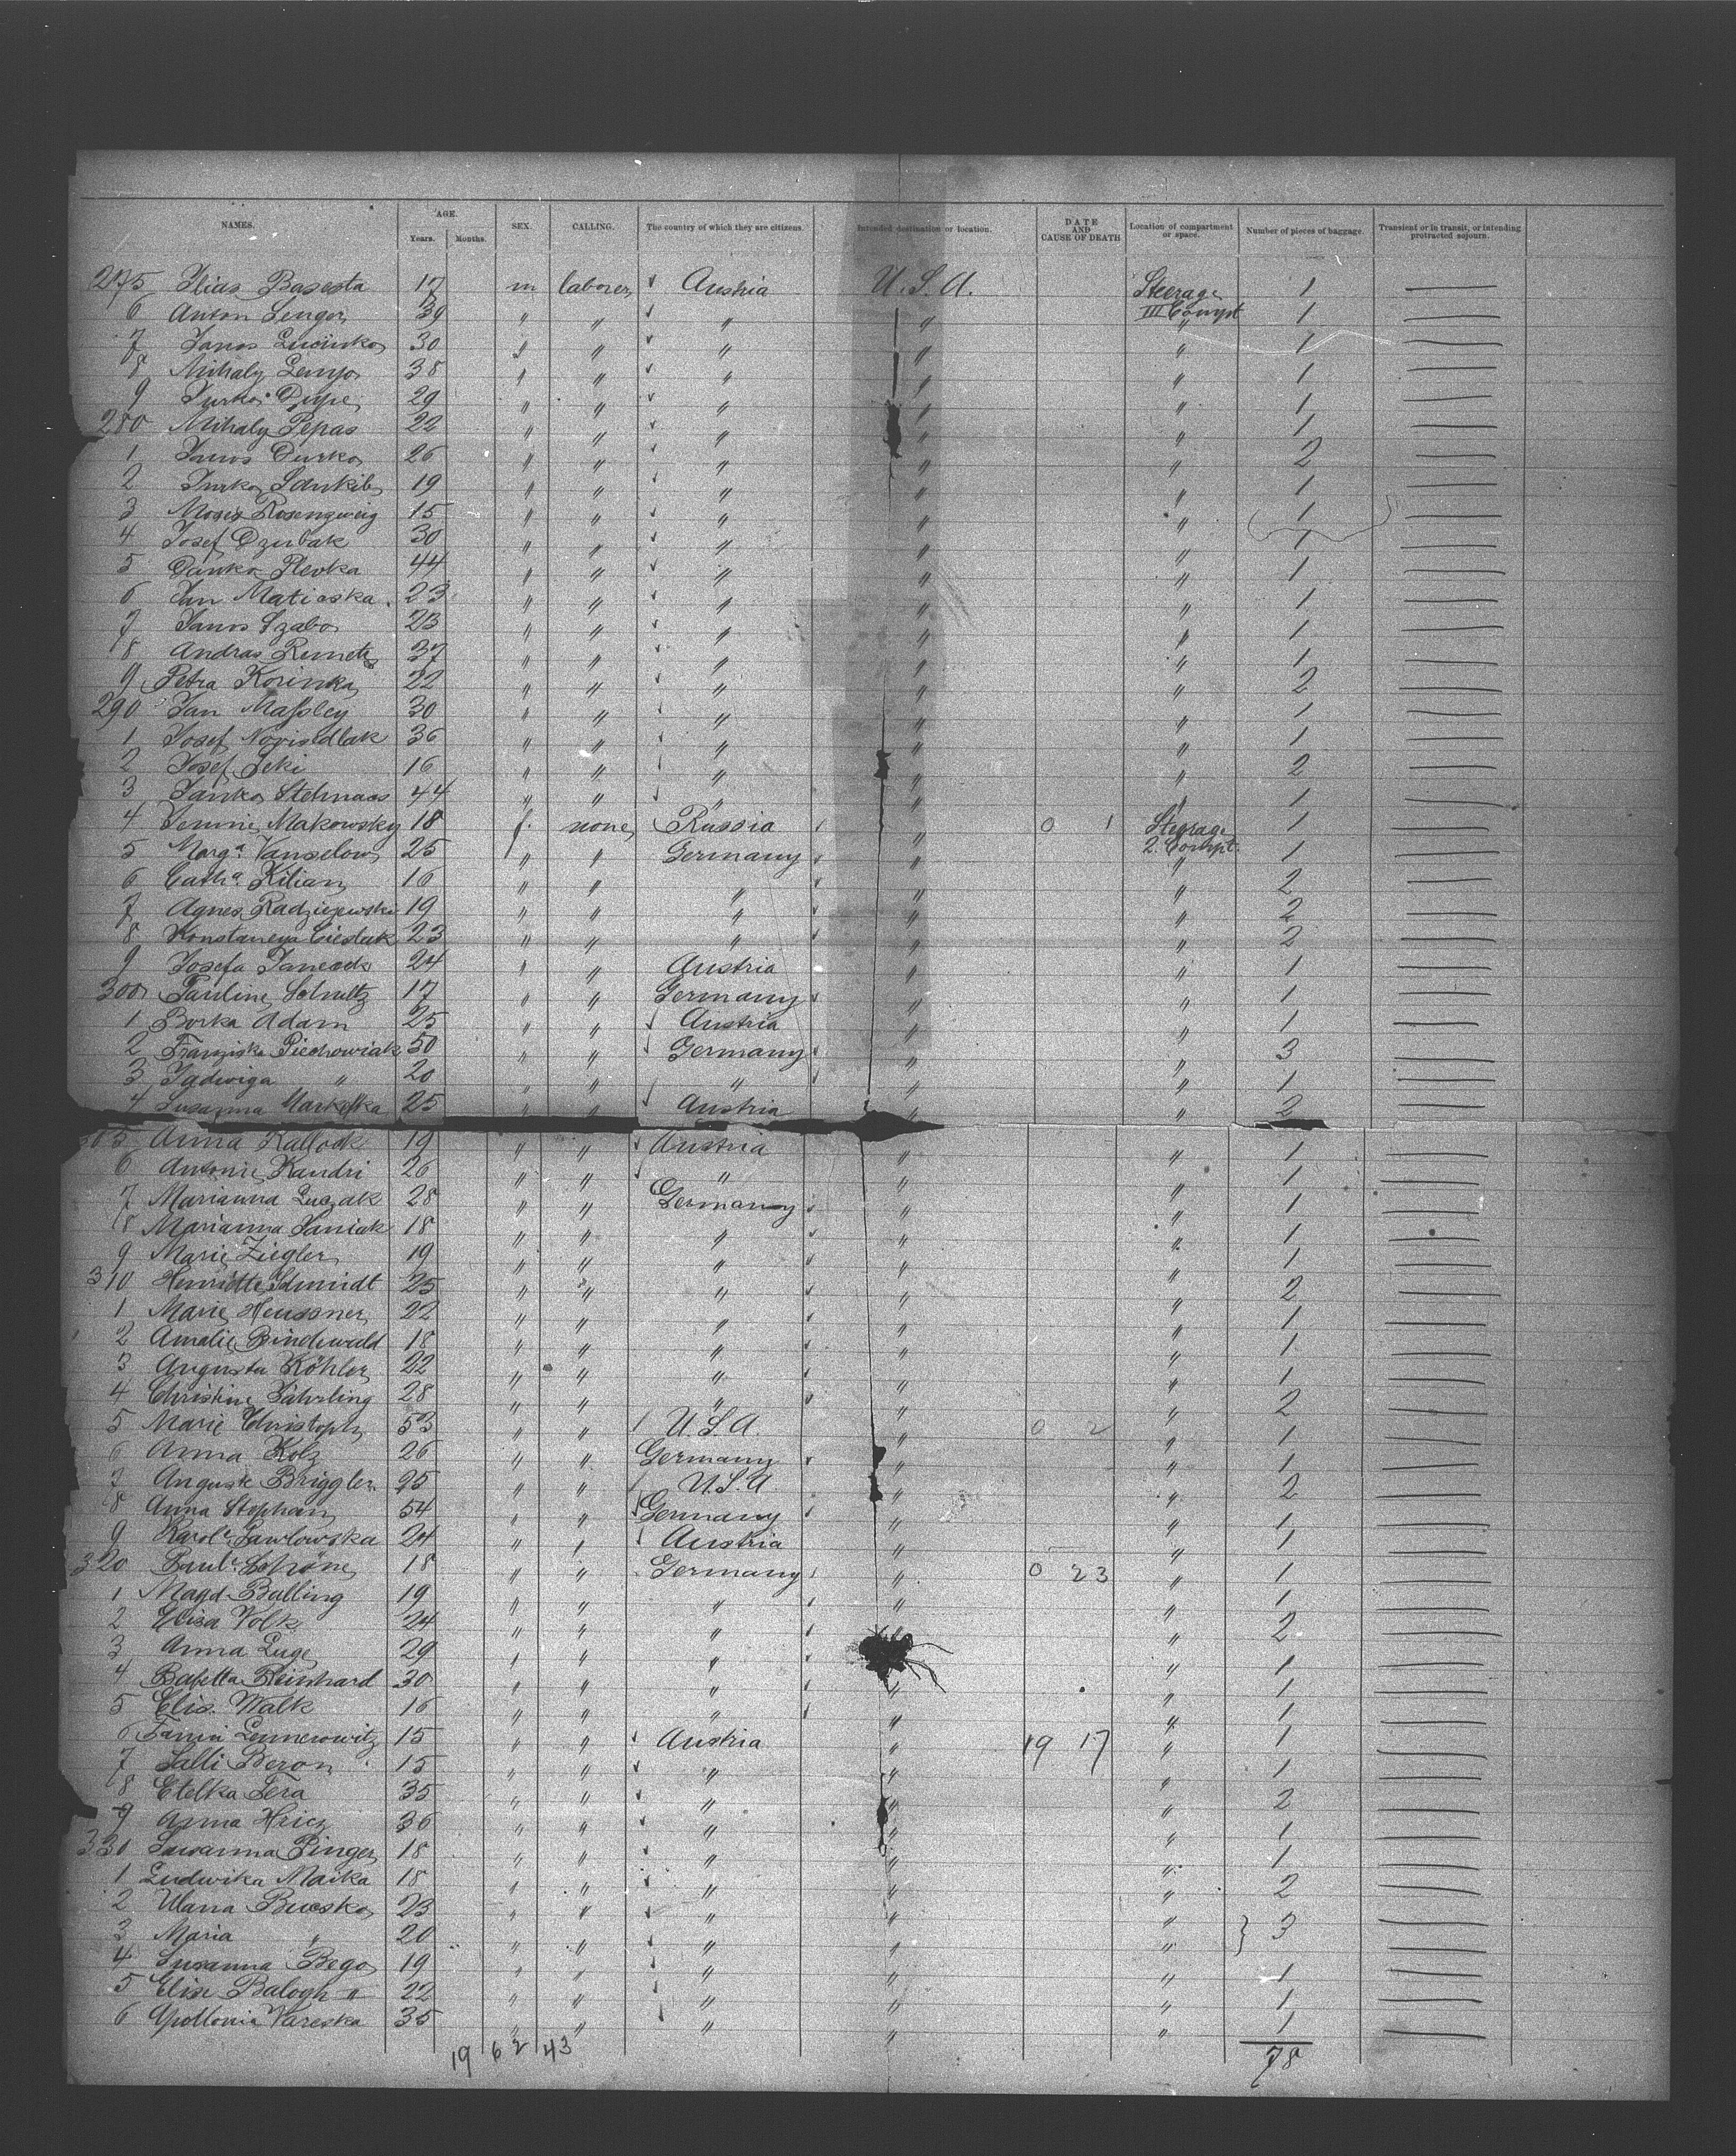 NAMES. AGE. SEX. CALLING. The country of which they are citizens. Intended destination or location. DATE AND CAUSE OF DEATH Location of compartment or space. Number of pieces of baggage. Transient or in transit, or intending protracted sojourn.
Years. Months.
275 Ilias Basesta 17 m laborer Austria U.S.A. Steerage 1
6 Anton Lengor 39 " " " " III Compt " 1
7 Janos 30 " " " " " 1
8 Mihaly Lemjo 38 " " " " " 1
9 Jurko 29 " " " " " 1
280 Mihaly Pepas 22 " " " " " 1
1 Janos Durko 26 " " " " " 2
2 Jurko 19 " " " " " 1
3 Moses Rosenzweig 15 " " " " " 1
4 Josef Dzubak 30 " " " " " 1
5 Danko Hlevka 44 " " " " " 1
6 Jan Matioska 23 " " " " " 1
7 Janos Szabo 23 " " " " " 1
8 Andras Remeta 37 " " " " " 1
9 Petra Korinka 22 " " " " " 2
290 Jan Massley 30 " " " " " 1
1 Josef Novisedlak 36 " " " " " 1
2 Josef Jeki 16 " " " " " 2
3 Janko Stehnaos 44 " " " " " 1
4 Makowsky 18 f. none Russia " 0 1 Steerage 1
5 Marg.a Vanselow 25 " " Germany " 2. Compt. " 1
6 Cath.a Kilian 16 " " " " " 2
7 Agnes Radziejewski 19 " " " " " 2
8 Konstancya Cieslak 23 " " " " " 2
9 Josefa Janecek 24 " " Austria " " 1
300 Pauline Schultz 17 " " Germany " " 1
1 Borka Adam 25 " " Austria " " 1
2 Franziska Piechowiak 50 " " Germany " " 3
3 Jadwiga " 20 " " " " " 1
4 Susanna Markoska 25 " " Austria " " 2
305 Anna Kallock 19 " " Austria " " 1
6 Antonie Kandri 26 " " " " " 1
7 Marianna Luczak 28 " " Germany " " 1
8 Marianna Janiak 18 " " " " " 1
9 Marie Ziegler 19 " " " " " 1
310 Henriette Schmidt 25 " " " " " 2
1 Marie Heussner 22 " " " " " 1
2 Amalie Bindewald 18 " " " " " 1
3 Augusta Köhler 22 " " " " " 1
4 Christine Fährling 28 " " " " " 2
5 Marie Christoph 53 " " U.S.A. " 0 2 " 1
6 Anna Kolz 26 " " Germany " " 1
7 Auguste Briggler 25 " " U.S.A. " " 2
8 Anna Stephan 54 " " Germany " " 1
9 Karol.e Pawlowska 24 " " Austria " " 1
320 Paul.e Schöne 18 " " Germany " 0 23 " 1
1 Magd. Balling 19 " " " " " 1
2 Elisa Volk 24 " " " " " 2
3 Anna Luge 29 " " " " " 1
4 Babetta Reinhard 30 " " " " " 1
5 Elis. Walk 16 " " " " " 1
6 Fanni Lennerowitz 15 " " Austria " 19 17 " 1
7 Salli Beron 15 " " " " " 1
8 Etelka Tera 35 " " " " " 2
9 Anna Hricz 36 " " " " " 1
330 Susanna Pinger 18 " " " " " 1
1 Ludwika Maika 18 " " " " " 2
2 Ulana Bucsko 23 " " " " " } 3
3 Maria " 20 " " " " "
4 Susanna Bego 19 " " " " " 1
5 Elise Balogh " 22 " " " " " 1
6 Apollonia Vareska 35 " " " " " 1
19 62 43 78